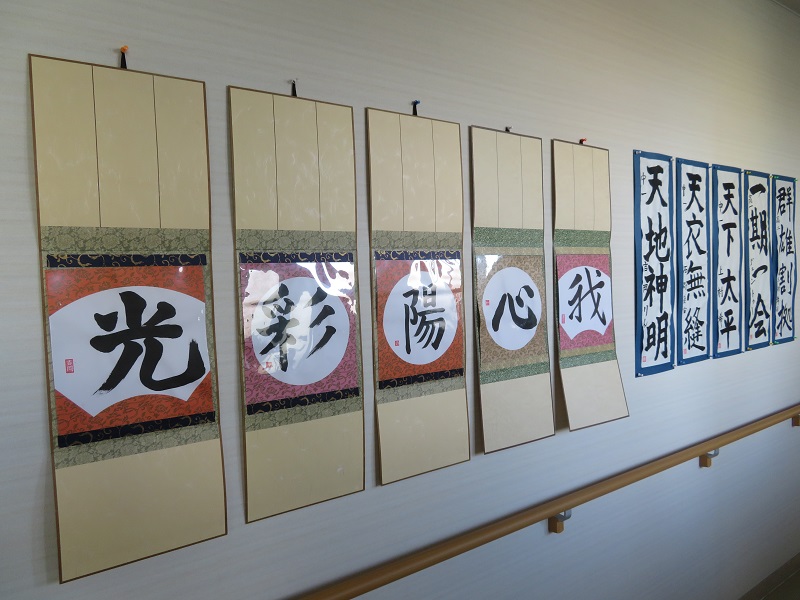 光
彩
陽
心
我
天地神明
天衣無縫
天下太平
一期一会
群雄割拠